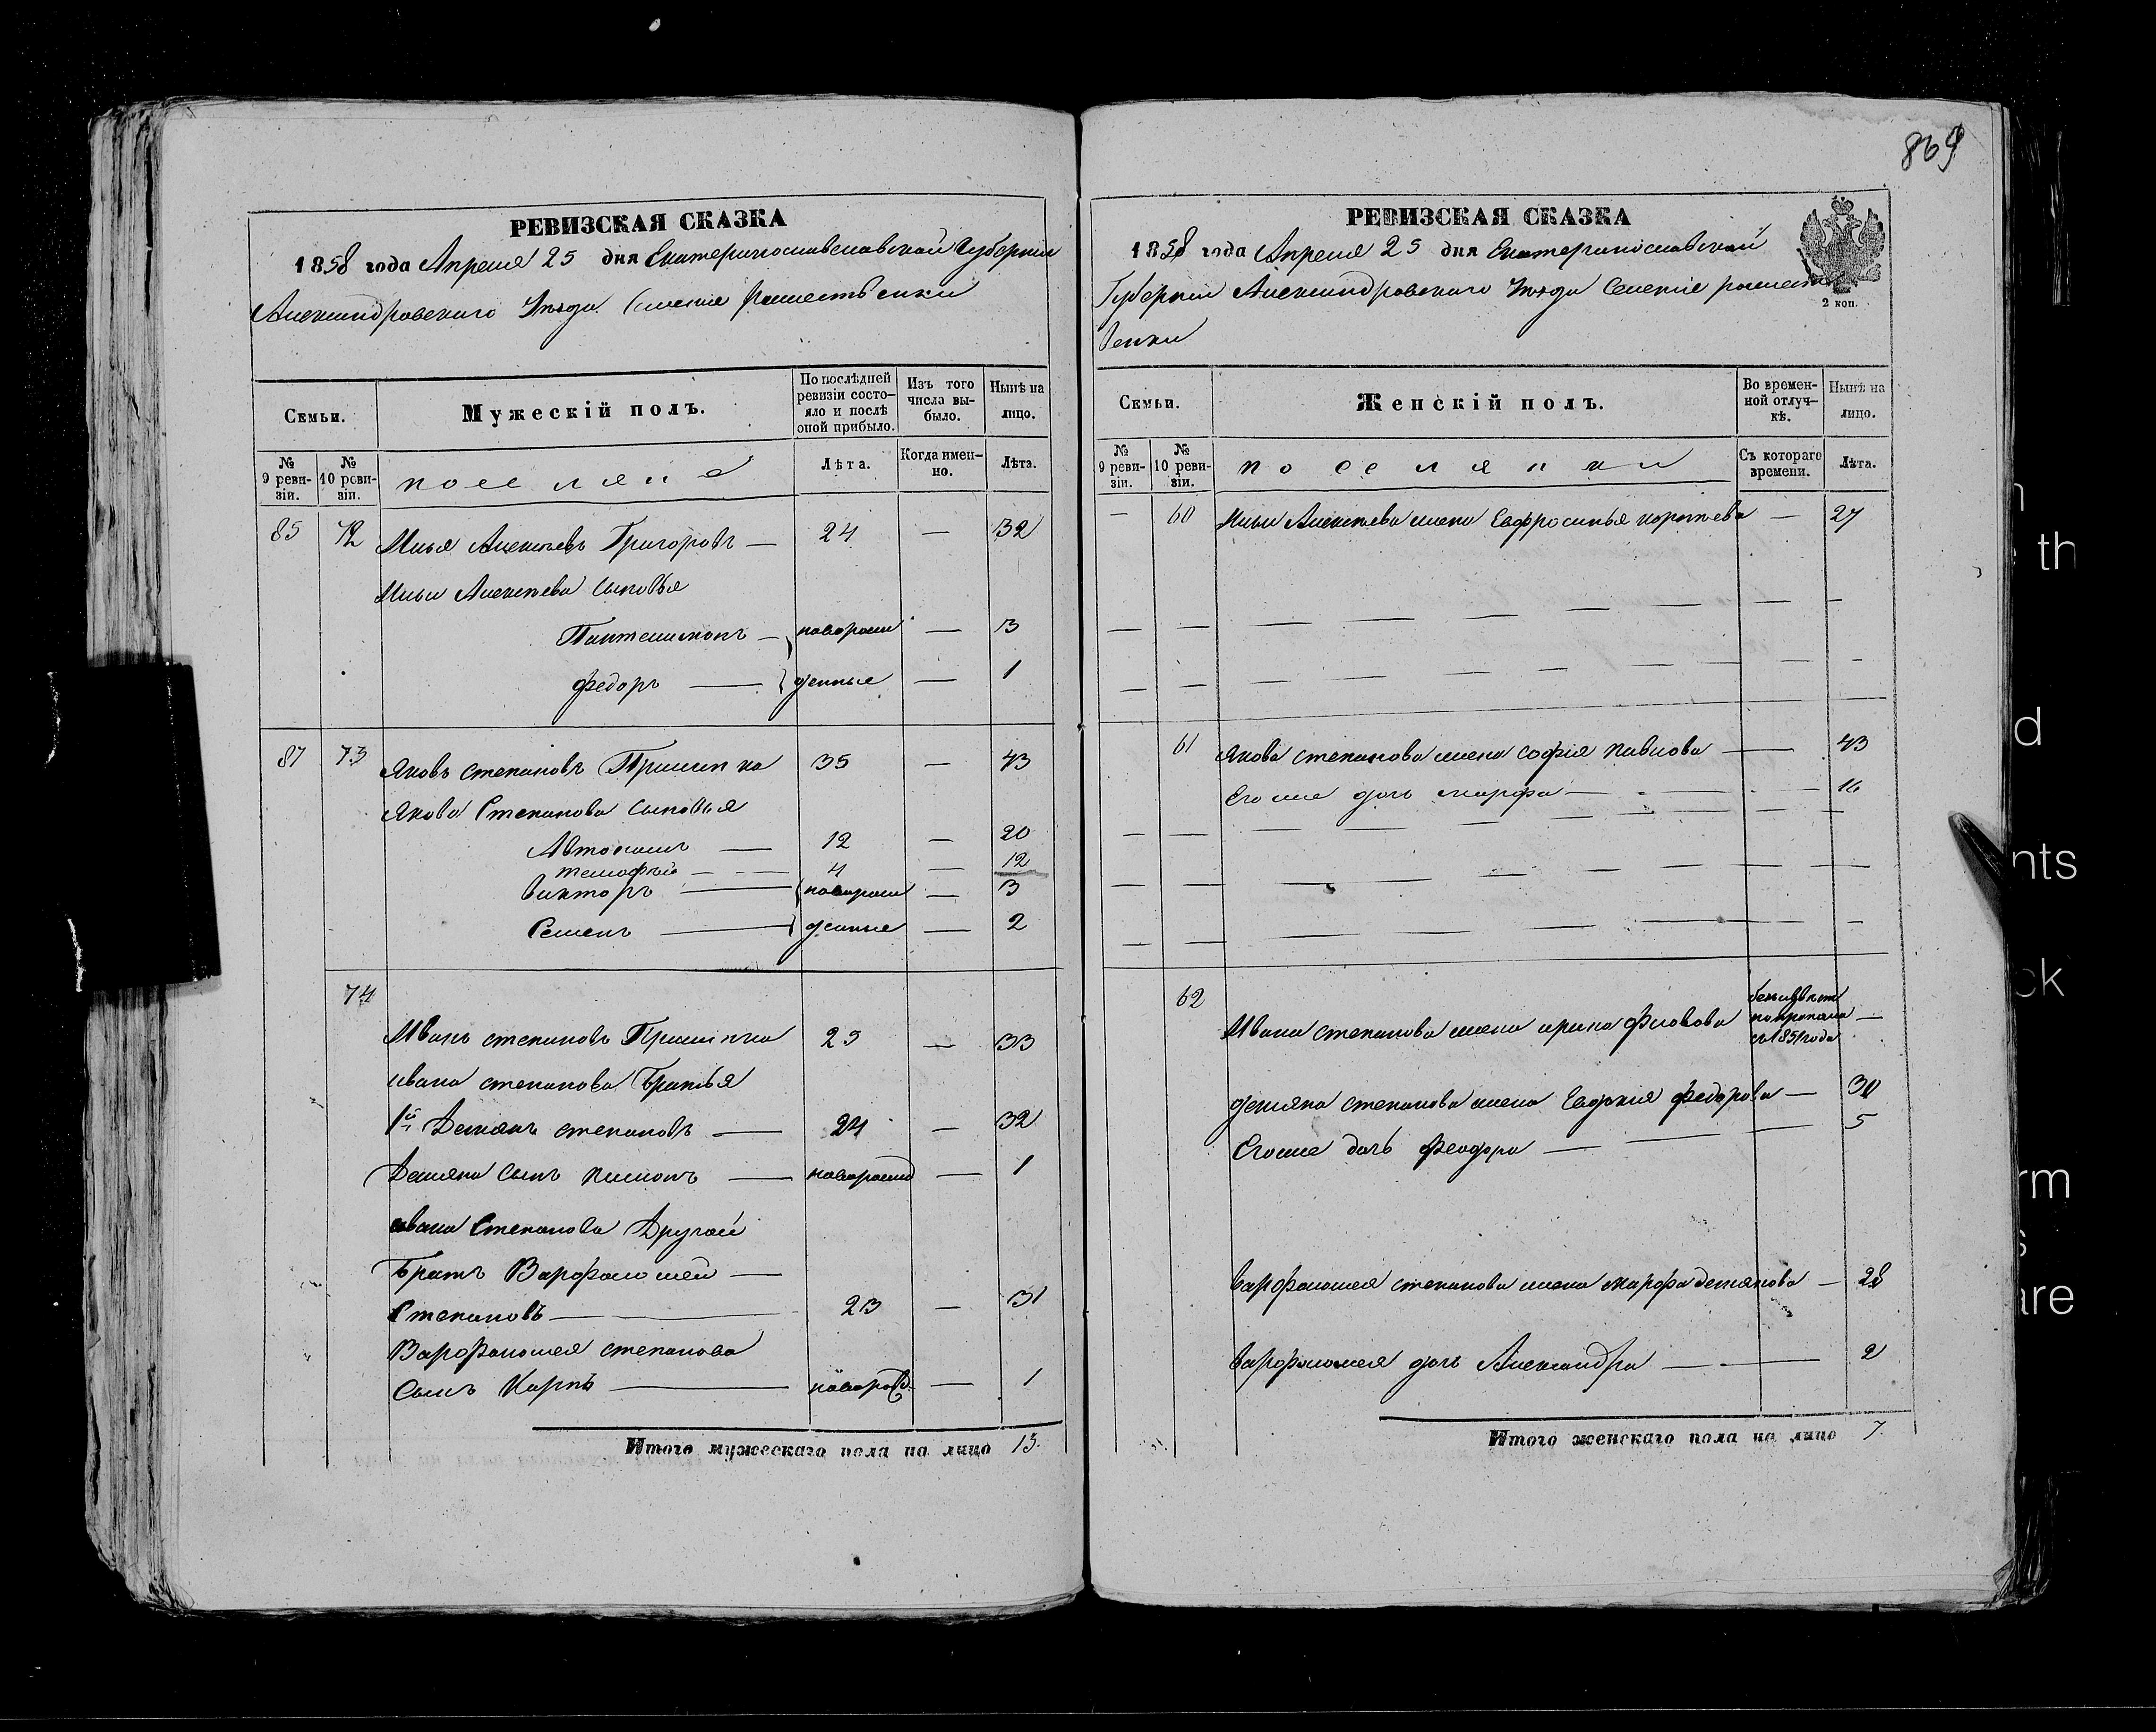 869
РЕВИЗСКАЯ СКАЗКА
1858 года Апреля 25 дня Екатеринославславской Губернии
Александровского Уезда Селение Рождественки
Семьи.
Мужескій полъ.
По послѣдней ревизіи состояло и послѣ оной прибыло.
Изъ того числа выбыло.
Нынѣ на лицо.
№ 9 ревизіи.
№ 10 ревизіи.
поселяне
Лѣта.
Когда именно.
Лѣта.
85 72 Илья Алексѣевъ Григоровъ — 24 — 32
Ильи Алексѣева сыновья
Пантелимонъ — новорож — 3
Федоръ — денные — 1
87 73 Яковъ степановъ Пришипка 35 — 43
Якова Степанова сыновья
Автономъ — 12 — 20
тимофѣй — 4 — 12
викторъ — новорож — 3
Семенъ — денные — 2
74
Иванъ степановъ Пришипка 25 — 33
ивана степанова Братья
1й Демянъ степановъ — 24 — 32
Демяна сынъ пимонъ — новорожд — 1
ивана Степанова Другой
Братъ Варфаломей —
Степановъ — 23 — 31
Варфаломея степанова
Сынъ Карпъ — новорож — 1
Итого мужескаго пола на лицо 13.
РЕВИЗСКАЯ СКАЗКА
1858 года Апреля 25 дня Екатеринославской
Губернии Александровского Уезда Селение рождест
венки
2 коп.
Семьи.
Женскій полъ.
Во временной отлучкѣ.
Нынѣ на лицо.
№ 9 ревизіи.
№ 10 ревизіи.
поселянки
Съ котораго времени.
Лѣта.
— 60 Ильи Алексѣева жена Евфросинья — 27
61 Якова степанова жена софія павлова — 43
Его же дочь марфа — 16
62
безъизвѣст
Ивана степанова жена ирина —
съ 1851 года
демяна степанова жена федорова — 30
Его же дочь феодора — 5
варфаломея степанова жена марфа демянова — 28
варфаломея дочь Александра — 2
Итого женскаго пола на лицо 7.
th
d
nts
ck
rm
s
are